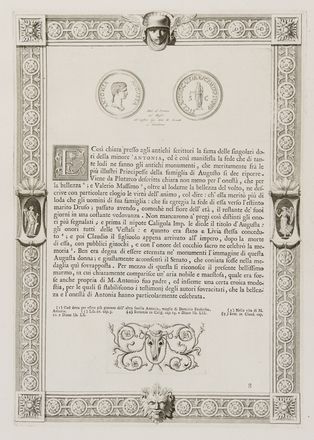 E Così chiara presso gli antichi scrittori la fama delle singolari do-
ti della minore ANTONIA, ed è così manifesta la fede che di tan-
te lodi ne fanno gli antichi monumenti, che meritamente frà le
più illustri Principesse della famiglia di Augusto si dee riporre.
Viene da Plutarco descritta chiara non meno per l'onestà, che per
la bellezza; e Valerio Massimo, oltre al lodarne la bellezza del volto, ne de-
scrive con particolare elogio le virtù dell'animo, col dire: ch'essa superò la
lode che gli uomini di sua famiglia: che fu egregia la fede di essa verso l'estinto
marito Druso; passato avendo, comechè nel fiore dell'età, il restante de' suoi
giorni in una costante vedovanza. Non mancarono a' pregi così distinti gli ono-
ri più segnalati; e prima il nipote Caligola Imp. le diede il titolo d'Augusta e
gli onori tutti delle Vestali: e quanto era stata a Livia stessa conceduto;
e poi Claudio il figliuolo appena arrivato all'impero, dopo la morte
di essa, con pubblici giuochi, e con l'onore del cocchio sacro ne celebrò la me-
moria. Ben era degna di essere eternata ne' monumenti l'immagine di questa
Augusta donna; e giustamente acconsentì il Senato, che coniata fosse nella me-
daglia quì sovrapposta. Per mezzo di questa si riconosce il presente bellissimo
marmo, in cui chiaramente comparisce un' aria nobile e maestosa, quale era fors-
e anche propria di M. Antonio suo padre, ed insieme una certa eroica mode-
stia, per le quali si stabiliscono i testimonj degli autori sovraccitati, che la bellez-
za e l'onestà di Antonia hanno particolarmente celebrata.
8